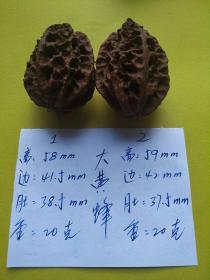 1
高：58mm
边：41.5mm
肚：38.5mm
重：20克
大黄蜂
2
高：59mm
边：42mm
肚：37.5mm
重：20克